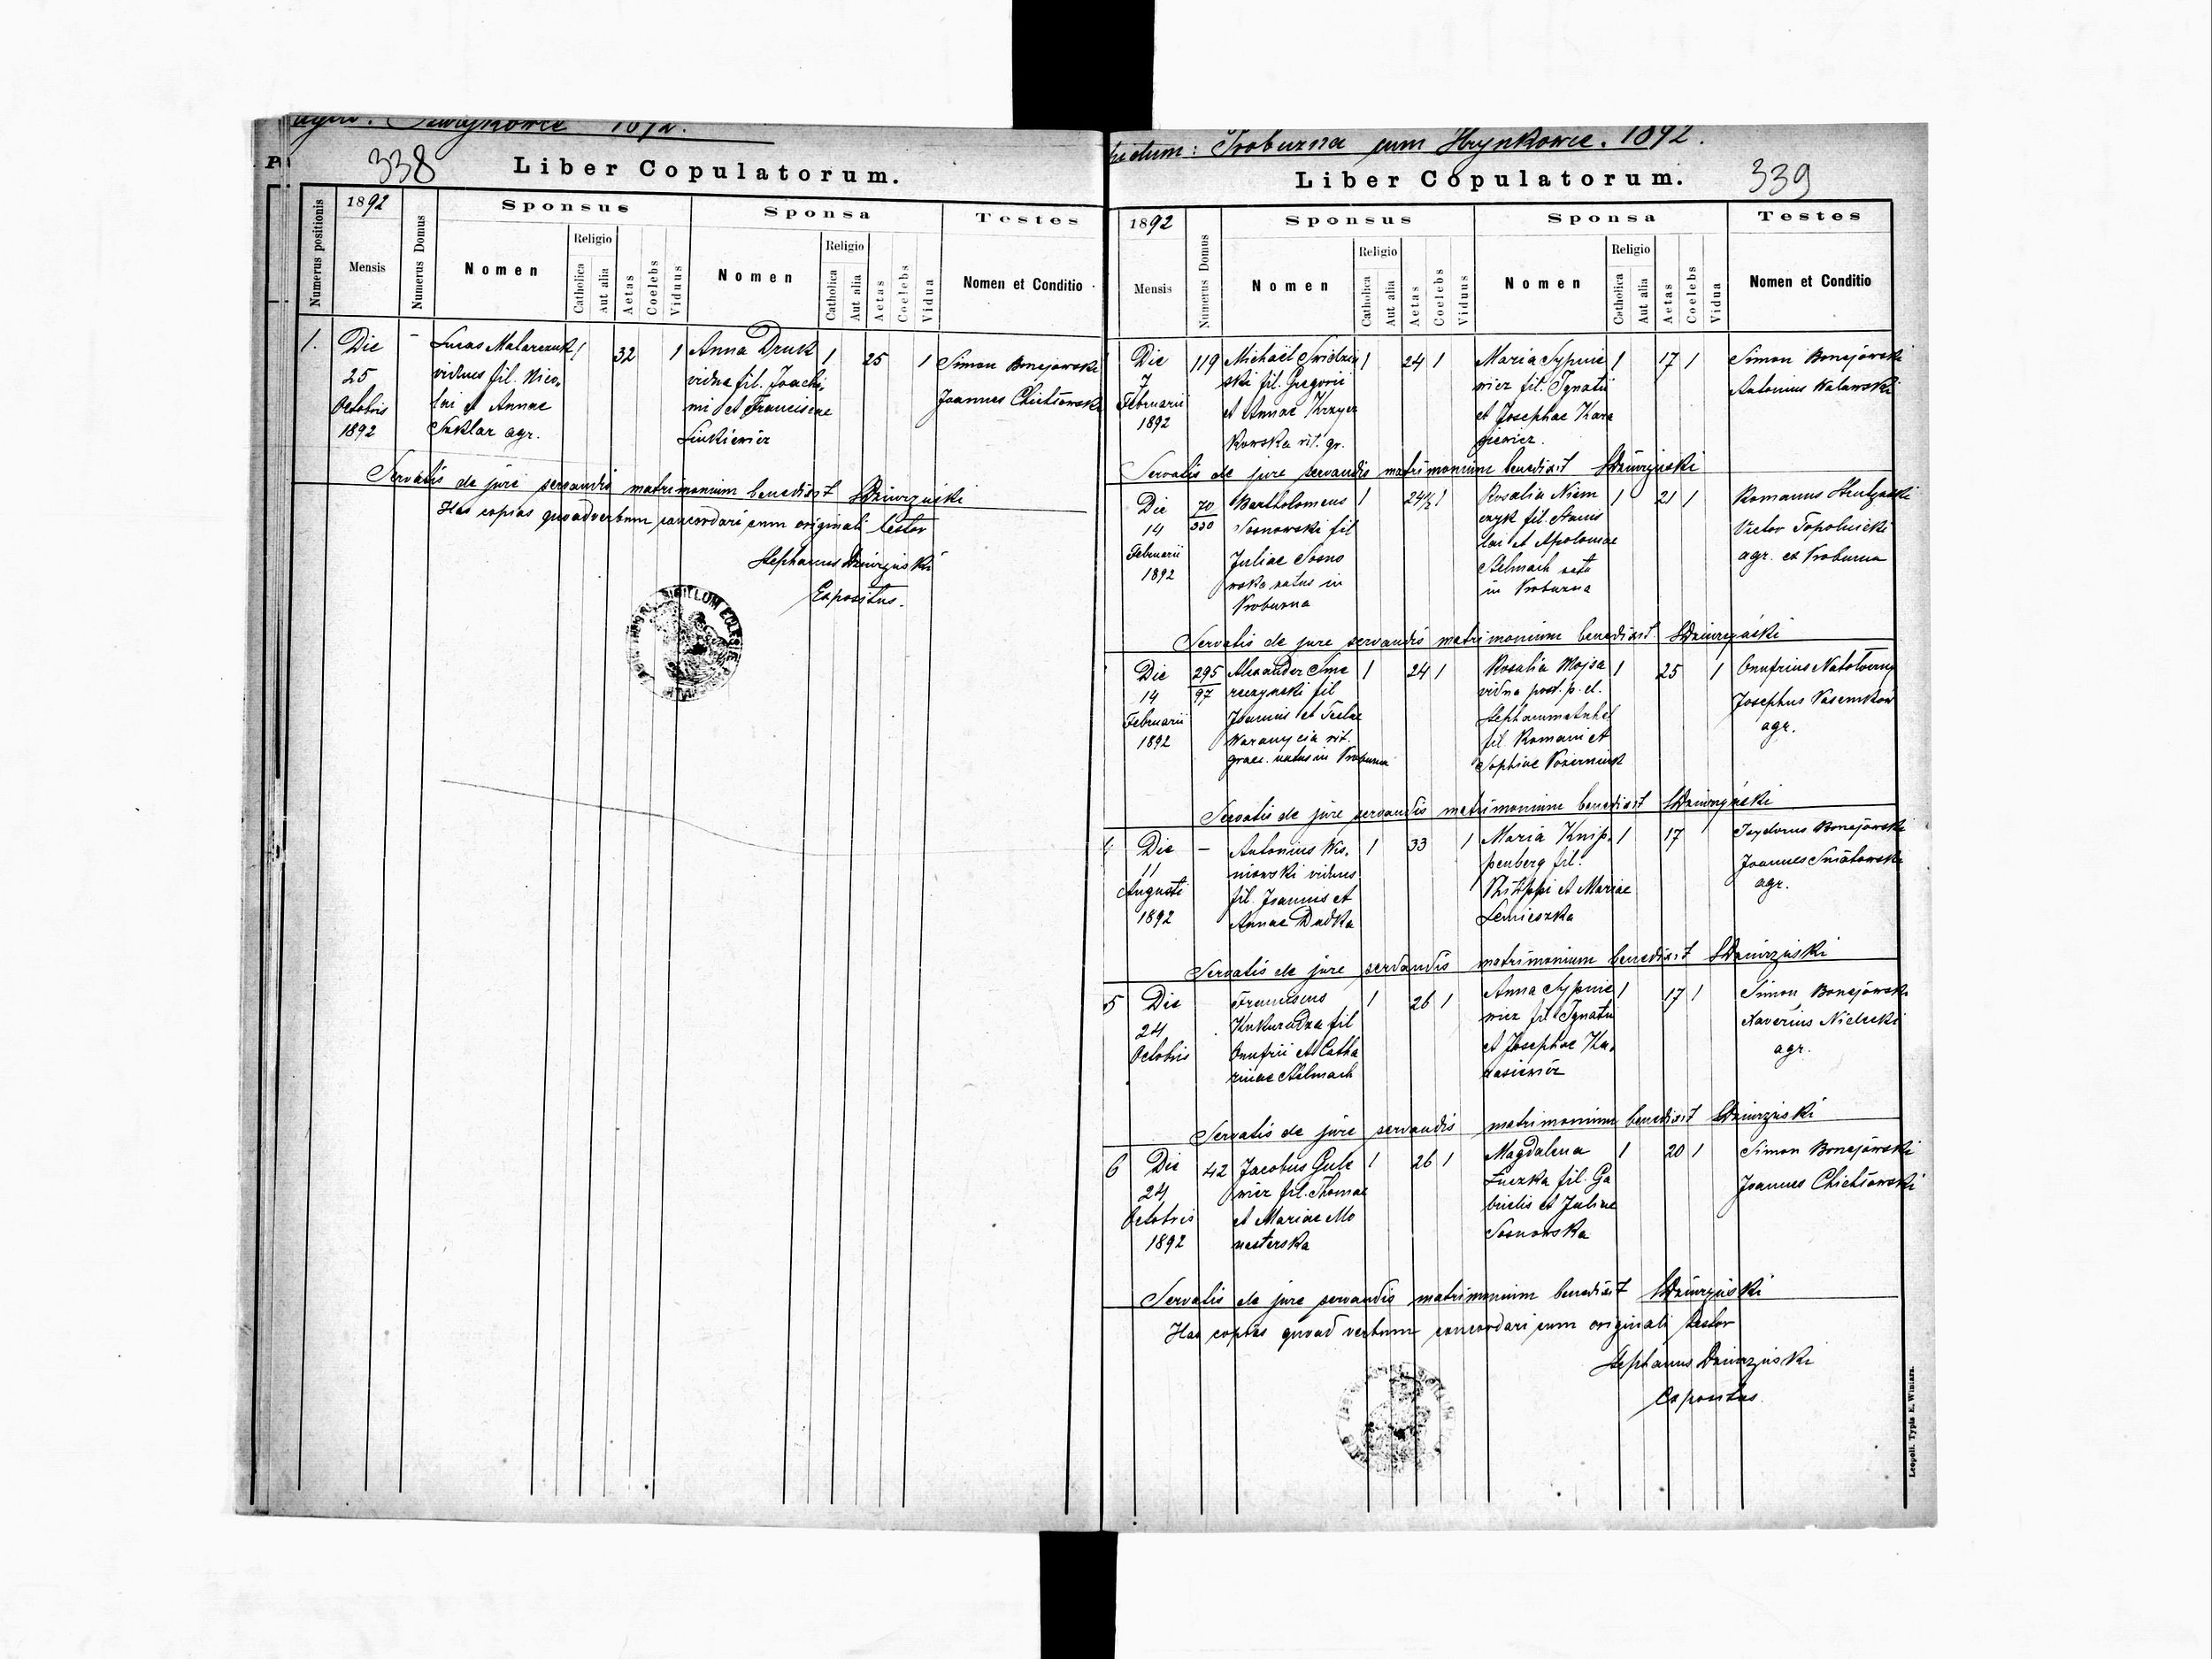 1892.
338
Liber Copulatorum.
Numerus positionis
1892
Mensis
Numerus Domus
Sponsus
Nomen
Religio
Catholica
Aut alia
Aetas
Coelebs
Viduus
Sponsa
Nomen
Religio
Catholica
Aut alia
Aetas
Coelebs
Vidua
Testes
Nomen et Conditio
1.
Die
25
Octobris
1892
-
Lucas Malarczuk
viduus fil. Nico-
lai et Annae
agr.
1
32
1
Anna Druk
vidua fil. Joachi-
mi et Franciscae
1
25
1
Simon Bonejowski
Joannes
Servatis de jure servandis matrimonium benedixit SDziurzyński
Has copias quoad verbum concordari cum originali testor
Stephanus Dziurzyński
Expositus.
SIGILLUM ECCLESIAE
cum Hrynkowce. 1892.
Liber Copulatorum.
339
1892
Mensis
Numerus Domus
Sponsus
Nomen
Religio
Catholica
Aut alia
Aetas
Coelebs
Viduus
Sponsa
Nomen
Religio
Catholica
Aut alia
Aetas
Coelebs
Vidua
Testes
Nomen et Conditio
Die
7
Februarii
1892
119
Michaël
ski fil. Gregorii
et Annae
kowska rit. gr.
1
24
1
Maria Sypnie
wicz fil. Ignatii
et Josephae
1
17
1
Simon Bonejówski
Antonius
Servatis de jure servandis matrimonium benedixit SDziurzyński
Die
14
Februarii
1892
70
330
Bartholomeus
Sosnowski fil
Juliae Sosno
wska natus in
Proburna
1
24½
1
Rosalia Niem
czyk fil. Stanis
lai et Apoloniae
Stelmach nata
in Proburna
1
21
1
Romanus
Victor Topolnicki
agr. ex Proburna
Servatis de jure servandis matrimonium benedixit SDziurzyński
Die
14
Februarii
1892
295
97
Alexander Sma
rczynski fil
Joannis et Teclae
rit.
graec. natus in Proburna
1
24
1
Rosalia Mojsa
vidua post. p. d.
fil. Romani et
Sophiae
1
25
1
Onufrius
Josephus
agr.
Servatis de jure servandis matrimonium benedixit SDziurzyński
4
Die
11
Augusti
1892
-
Antonius Wis-
niowski viduus
fil. Joannis et
Annae Dudka
1
33
1
Maria Knip-
penberg fil.
Philippi et Mariae
Lemieszka
1
17
Isydorus Bonejówski
Joannes
agr.
Servatis de jure servandis matrimonium benedixit SDziurzyński
5
Die
24
Octobris
Franciscus
Kukurudza fil
Onufrii et Catha
rinae Stelmach
1
26
1
Anna Sypnie
wicz fil. Ignatii
et Josephae Ka-
rasiewicz
1
17
1
Simon Bonejówski
Xaverius Nielecki
agr.
Servatis de jure servandis matrimonium benedixit SDziurzyński
6
Die
24
Octobris
1892
42
Jacobus Gule
wicz fil. Thomae
et Mariae Mo
nasterska
1
26
1
Magdalena
Luczka fil. Ga
brielis et Juliae
Sosnowska
1
20
1
Simon Bonejówski
Joannes
Servatis de jure servandis matrimonium benedixit SDziurzyński
Has copias quoad verbum concordari cum originali testor
Stephanus Dziurzyński
Expositus
Leopoli. Typis E. Winiarz.